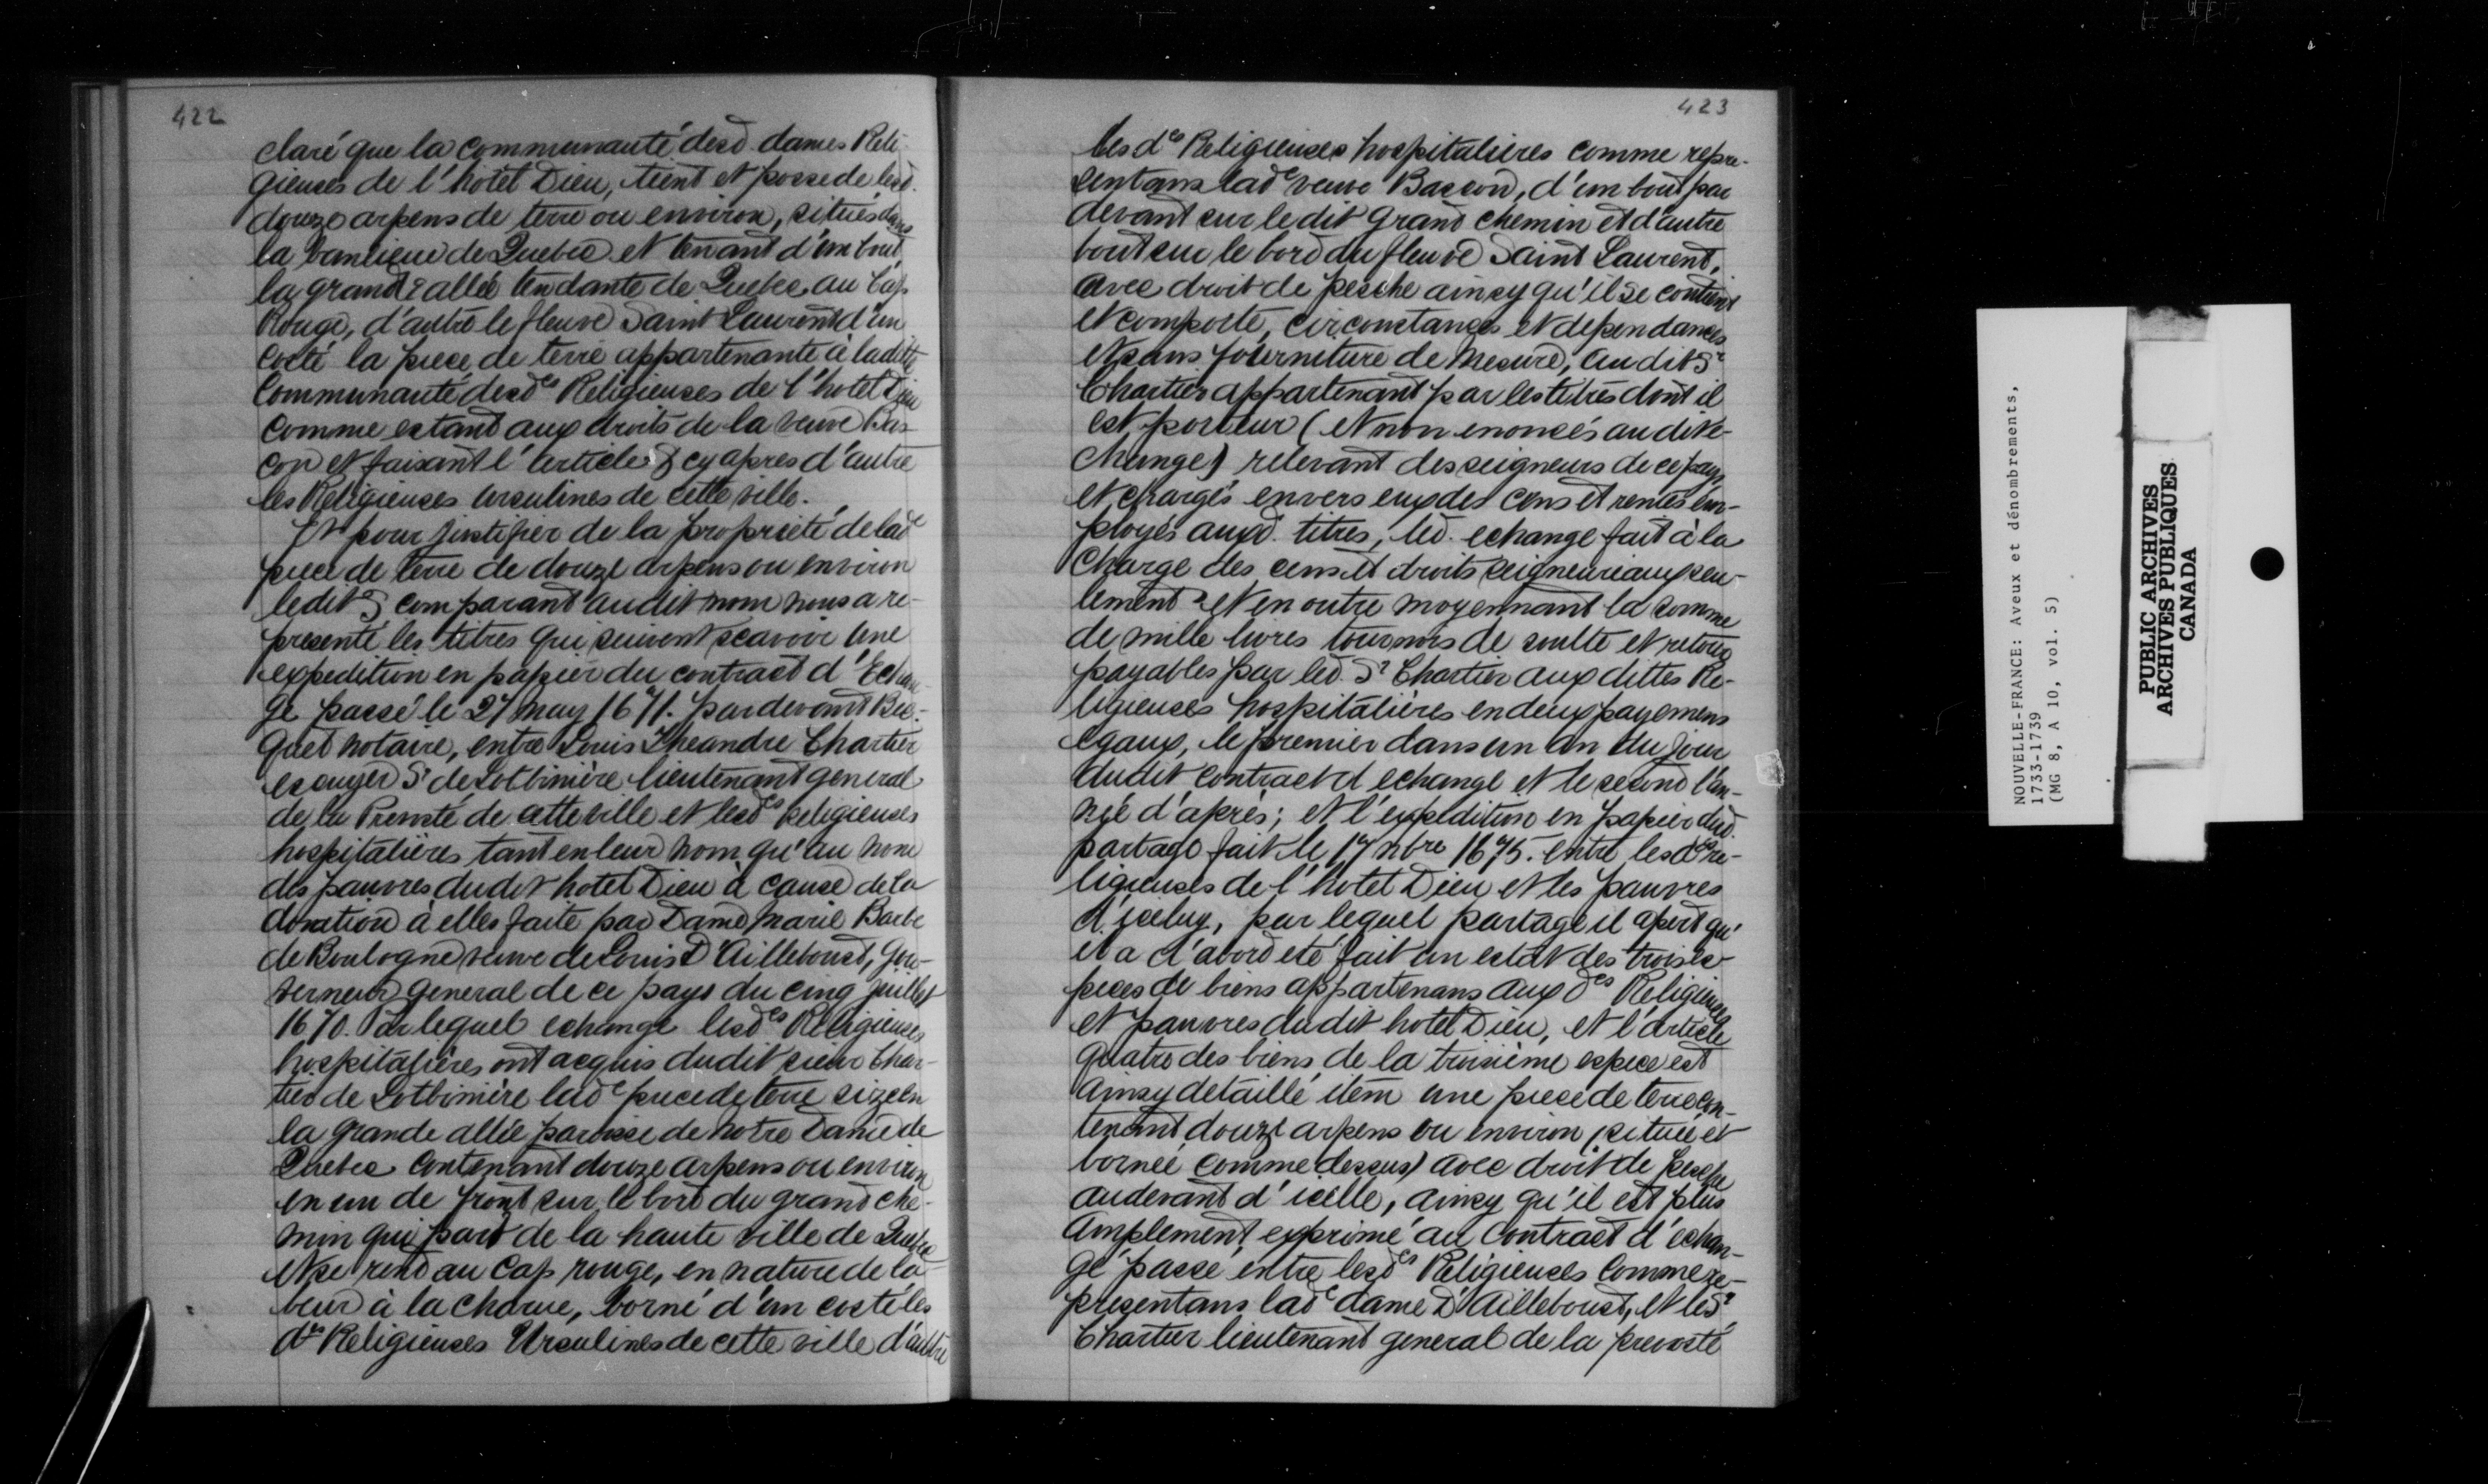 422
claré que la communauté desd. dames Reli-
gieuses de l'hotel Dieu, tient et possede lesd.
douze arpens de terre ou environ, situés dans
la banlieue de Quebec et tenant d'un bout
la grande allée tendante de Quebec au Cap
Rouge, d'autre le fleuve Saint Laurent d'un
costé la piece de terre appartenante à laditte
Communauté desdes Religieuses de l'hotel Dieu
comme estant aux droits de la veuve Bas-
con et faisant l'article 5 cy apres d'autre
les Religieuses Ursulines de cette ville.
Et pour justifier de la proprieté de lade
piece de terre de douze arpens ou environ
ledit S comparant audit nom nous a re-
presenté les titres qui suivent scavoir une
expedition en papier du contract d'Echan-
ge passé le 27 may 1671. pardevant Bec-
quet notaire, entre Louis Theandre Chartier
escuyer Sr de Lotbinière lieutenant general
de la Prevosté de cette ville et lesdes Religieuses
hospitalières tant en leur nom qu'au nom
des pauvres dudit hotel Dieu à cause de la
donation à elles faite par Dame Marie Barbe
de Boulogne veuve de Louis D'Ailleboust, gou-
verneur general de ce pays du cinq juillet
1670. Par lequel echange lesdes Religieuses
hospitalières ont acquis dudit sieur Char-
tier de Lotbinière lade piece de terre size en
la grande allée paroisse de Notre Dame de
Quebec contenant douze arpens ou environ
en un de front sur le bord du grand che-
min qui part de la haute ville de Quebec
et se rend au Cap rouge, en nature de la-
beur à la charue, borné d'un costé les
des Religieuses Ursulines de cette ville d'autre
423
les des Religieuses hospitalières comme repre-
sentans lade veuve Bascon, d'un bout par
devant sur le dit grand chemin et d'autre
bout sur le bord du fleuve Saint Laurent,
avec droit de pesche ainsy qu'il se contient
et comporte, circonstances et dependances
et sans fourniture de mesure, audit Sr
Chartier appartenant par les titres dont il
est porteur (et non enoncés audit e-
change) relevant des seigneurs de ce pays
et chargés envers eux des cens et rentes em-
ployés auxd. titres, led. echange fait à la
charge des cens et droits seigneuriaux seu-
lement et en outre moyennant la somme
de mille livres tournois de soulte et retour
payables par led. Sr Chartier aux dittes Re-
ligieuses hospitalières en deux payemens
egaux, le premier dans un an du jour
dudit contract d'echange et le second l'an-
née d'après; et l'expedition en papier dud.
partage fait le 17 nbre 1675. entre lesdes re-
ligieuses de l'hotel Dieu et les pauvres
d'iceluy, par lequel partage il apert qu'
il a d'abord eté fait un estat des trois es-
peces de biens appartenans aux des Religieuses
et pauvres dudit hotel Dieu, et l'article
quatre des biens de la troisième espece est
ainsy detaillé item une piece de terre con-
tenant douze arpens ou environ (située et
bornée comme dessus) avec droit de pesche
audevant d'icelle, ainsy qu'il est plus
amplement exprimé au contract d'echan-
ge passé entre lesdes Religieuses comme re-
presentans lade dame D'Ailleboust, et led. Sr
Chartier lieutenant general de la prevosté
NOUVELLE-FRANCE: Aveux et dénombrements,
1733-1739
(MG 8, A 10, vol. 5)
PUBLIC ARCHIVES
ARCHIVES PUBLIQUES
CANADA